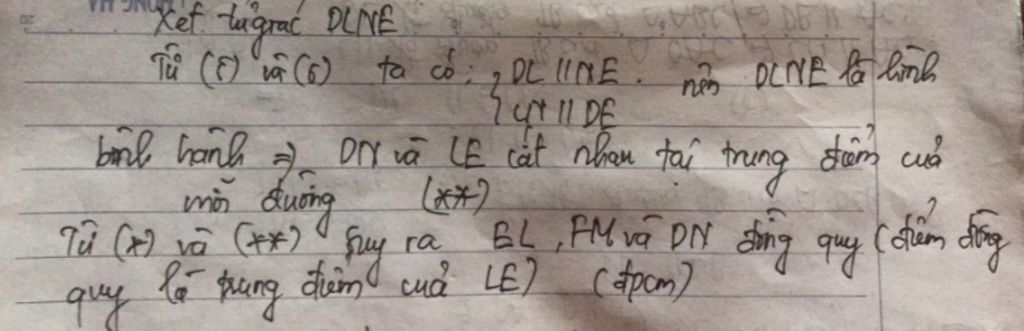 Xét tứ giác DLNE
Từ (5) và (6) ta có: { DL // NE. nên DLNE là hình
LN // DE
bình hành => DN và LE cắt nhau tại trung điểm của
mỗi đường (**)
Từ (*) và (**) suy ra EL, FM và DN đồng quy (điểm đồng
quy là trung điểm của LE) (đpcm)